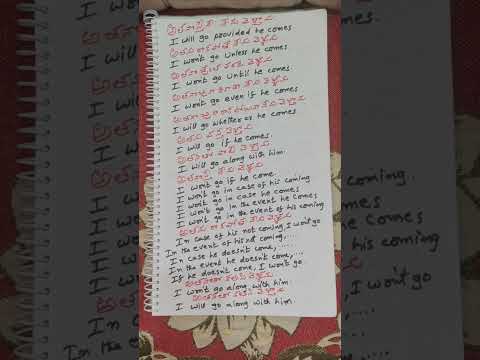 అతనొస్తేనే నేను వెళ్తాను
I will go provided he comes
అతను రాకపోతే నేను వెళ్లను
I won't go unless he comes.
అతనొచ్చే వరకు వెళ్లను
I wont go until he comes.
అతనొచ్చినా నేను వెళ్లను
I won't go even if he comes
I will go whether or he comes
అతను వస్తే వెళ్తాను
I will go if he comes.
I will go along with him.
అతనొస్తే నేను వెళ్లను
I wont go if he come.
I won't go in case of his coming
I won't go in case he comes
I won't go in the event he comes
I won't go in the event of his coming
అతను రాకపోతే నేను వెళ్లను
In case of his not coming I won't go
In the event of his not coming....
In case he doesn't come,....
In the event he doesn't come,....
If he doesn't come, I won't go
అతనితో నేను వెళ్లను
I won't go along with him.
అతనితో నేను వెళ్తాను
I will go along with him